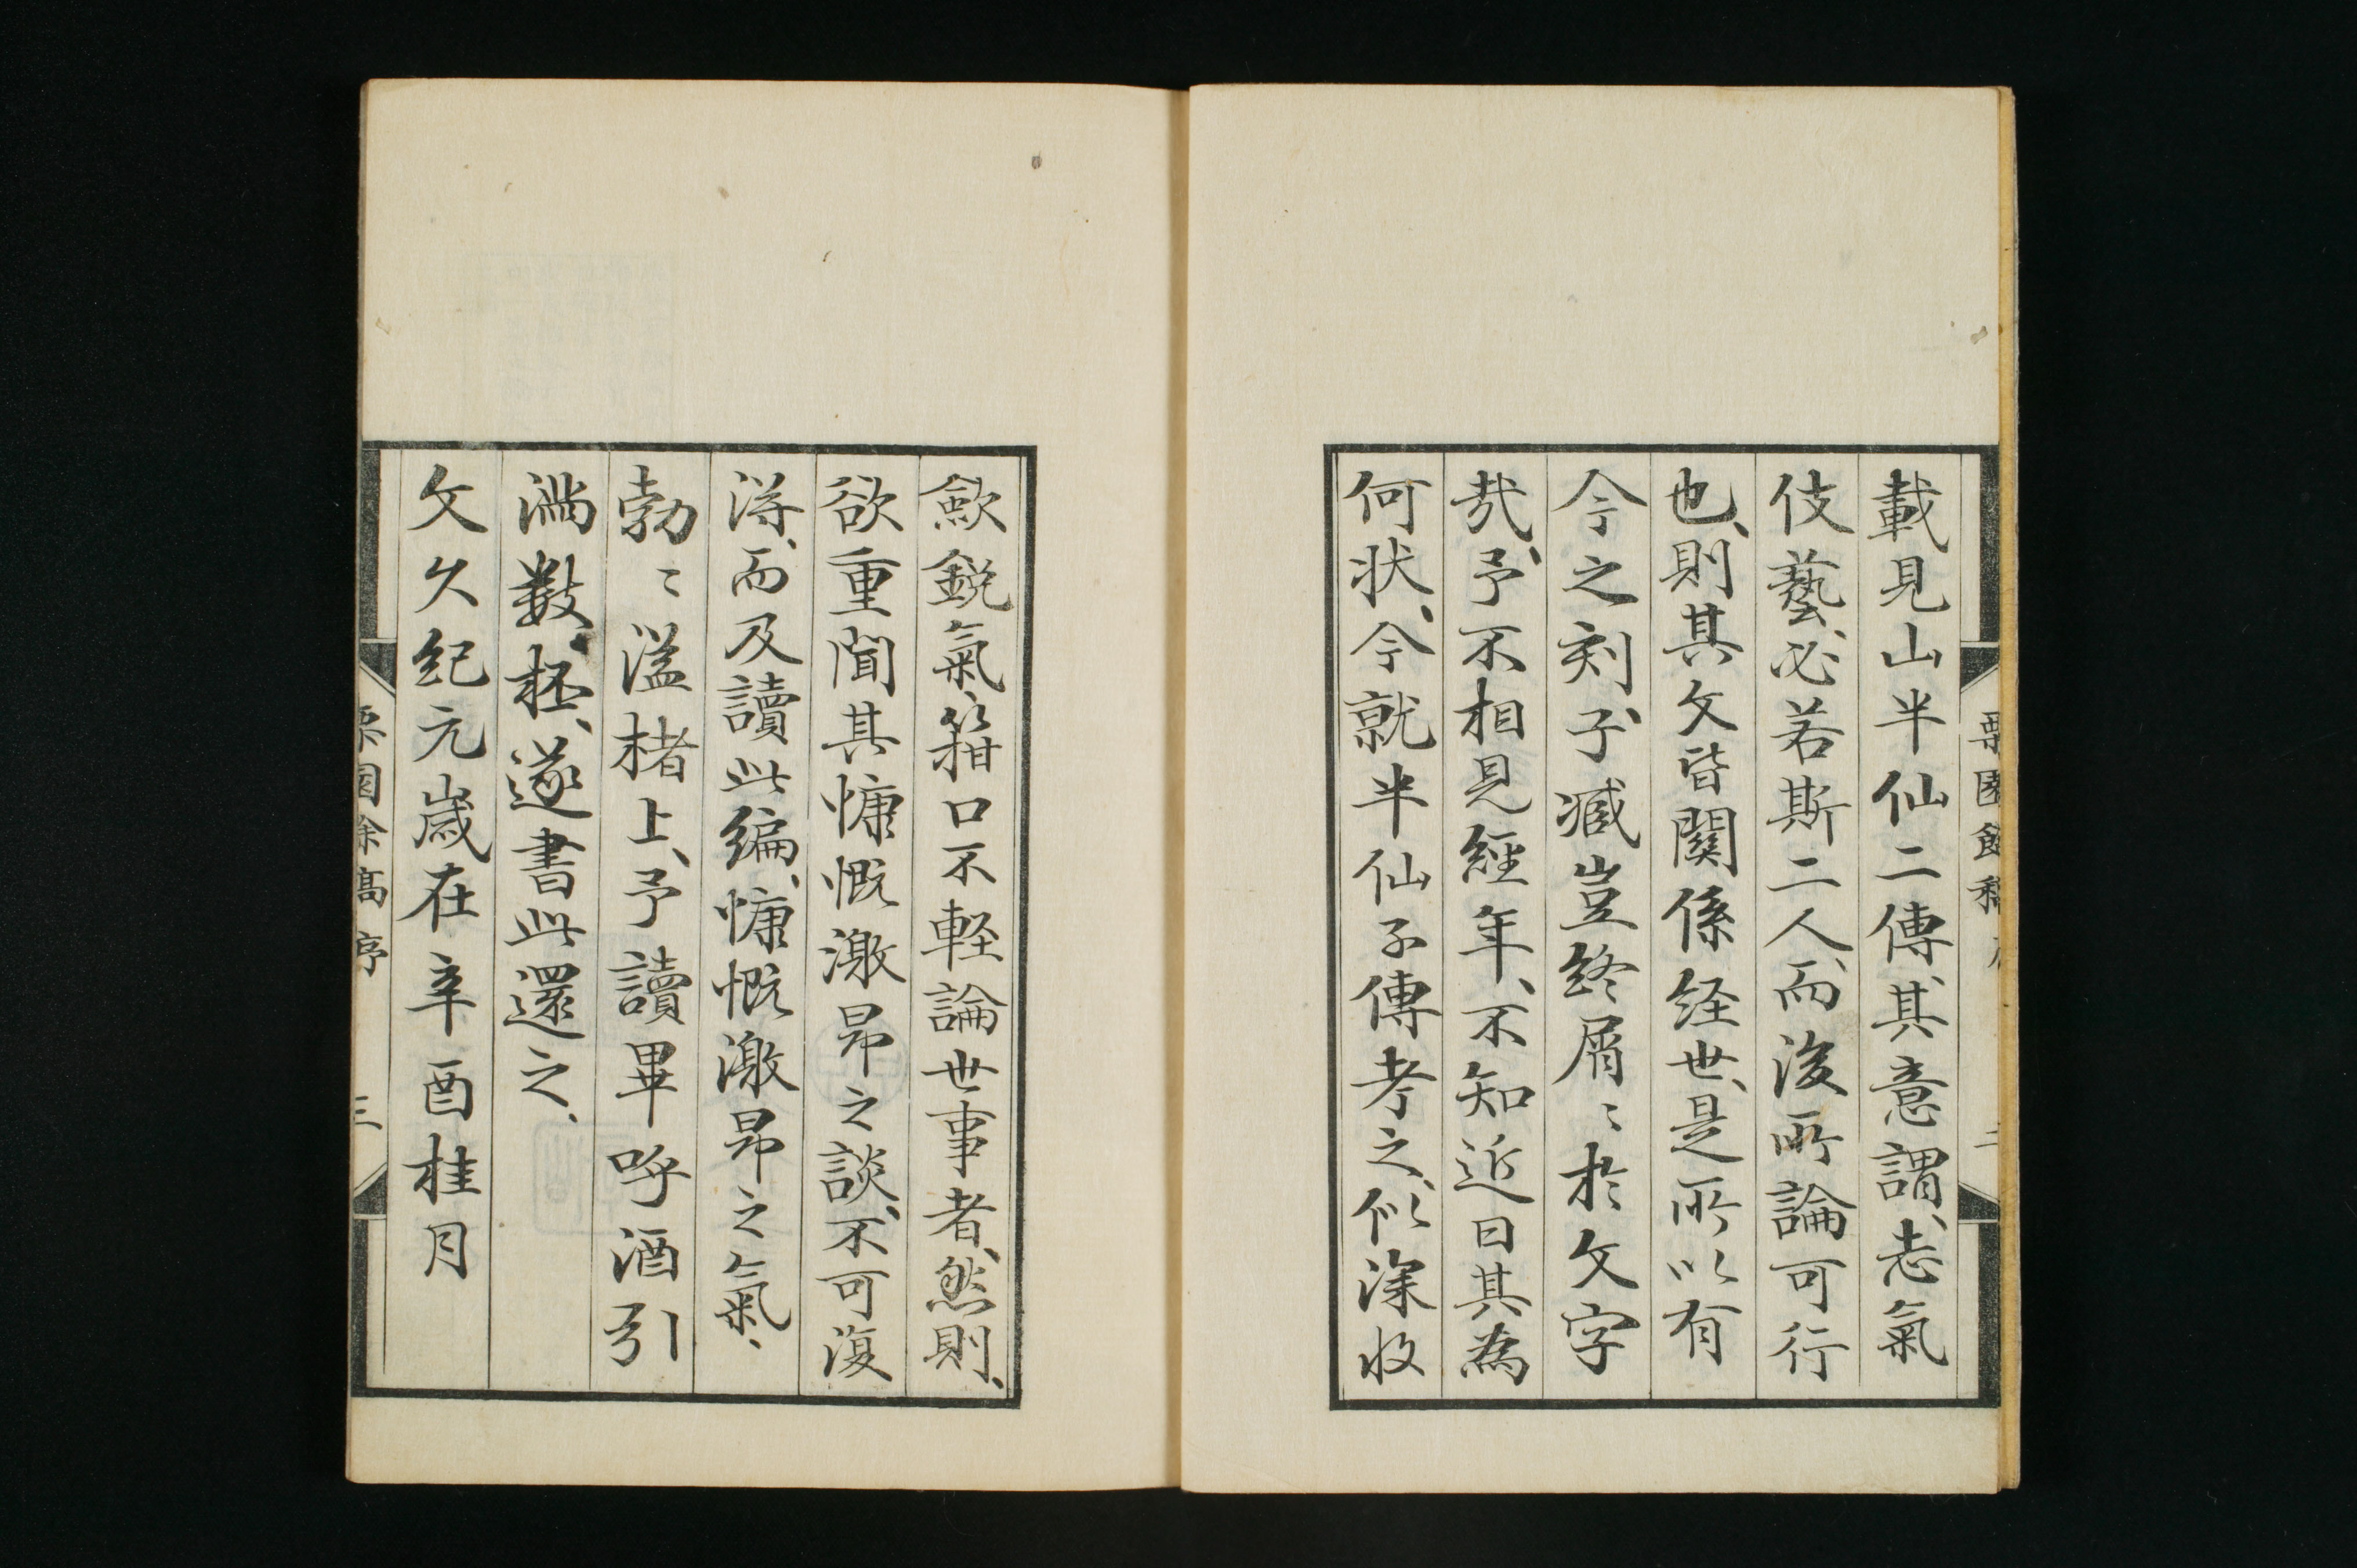 載見山半仙二傳、其意謂、志氣
伎藝、必若斯二人、而後所論可行
也、則其文皆關係経世、是所以有
今之刻、子臧豈終屑〻於文字
哉、予不相見經年、不知近日其為
何状、今就半仙子傳考之、似深收
歛鋭氣、箝口不輕論世事者、然則、
欲重聞其慷慨激昂之談、不可復
得、而及讀此編、慷慨激昂之氣、
勃〻溢楮上、予讀畢呼酒引
滿數杯、遂書此還之、
文久紀元歳在辛酉桂月
栗園餘稿 序 三